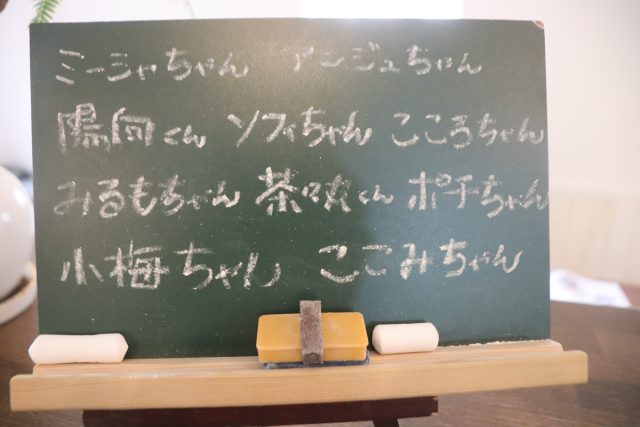 ミーシャちゃん アンジュちゃん
陽向くん ソフィちゃん こころちゃん
みるもちゃん 茶々丸くん ポチちゃん
小梅ちゃん ここみちゃん